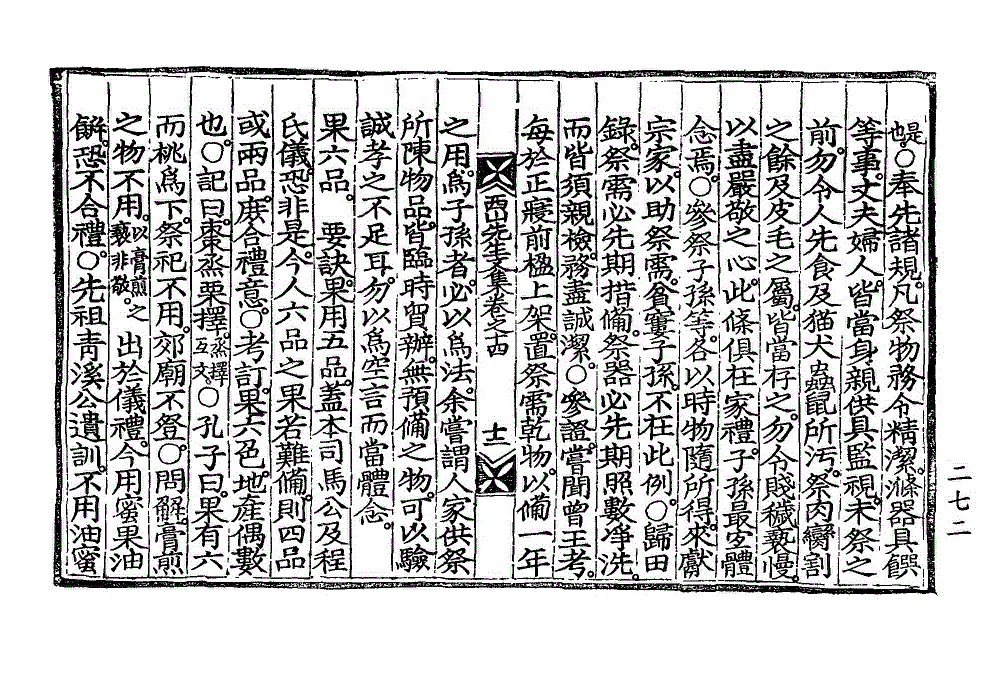 也是。○奉先諸規。凡祭物務令精潔。滌器具饌
等事。丈夫婦人。皆當身親供具監視。未祭之
前。勿令人先食及猫犬蟲鼠所汚。祭肉臠割
之餘及皮毛之屬。皆當存之。勿令賤穢褻慢。
以盡嚴敬之心。此條俱在家禮。子孫最宜體
念焉。○參祭子孫等。各以時物隨所得。來獻
宗家。以助祭需。貧窶子孫。不在此例。○歸田
錄。祭需必先期措備。祭器必先期照數凈洗。
而皆須親檢。務盡誠潔。○參證。嘗聞曾王考。
每於正寢前楹上架。置祭需乾物。以備一年
西山先生文集卷之十四
十一
之用。爲子孫者。必以爲法。余嘗謂人家供祭
所陳物品。皆臨時貿辦。無預備之物。可以驗
誠孝之不足耳。勿以爲空言而當體念。
果六品 要訣。果用五品。蓋本司馬公及程
氏儀。恐非是。今人六品之果若難備則四品
或兩品。庶合禮意。○考訂。果六色。地產偶數
也。○記曰。棗烝栗擇。烝擇互文。○孔子曰。果有六
而桃爲下。祭祀不用。郊廟不登。○問解。膏煎
之物不用。以膏煎褻非敬。之出於儀禮。今用蜜果油
餠。恐不合禮。○先祖靑溪公遺訓。不用油蜜
二七二